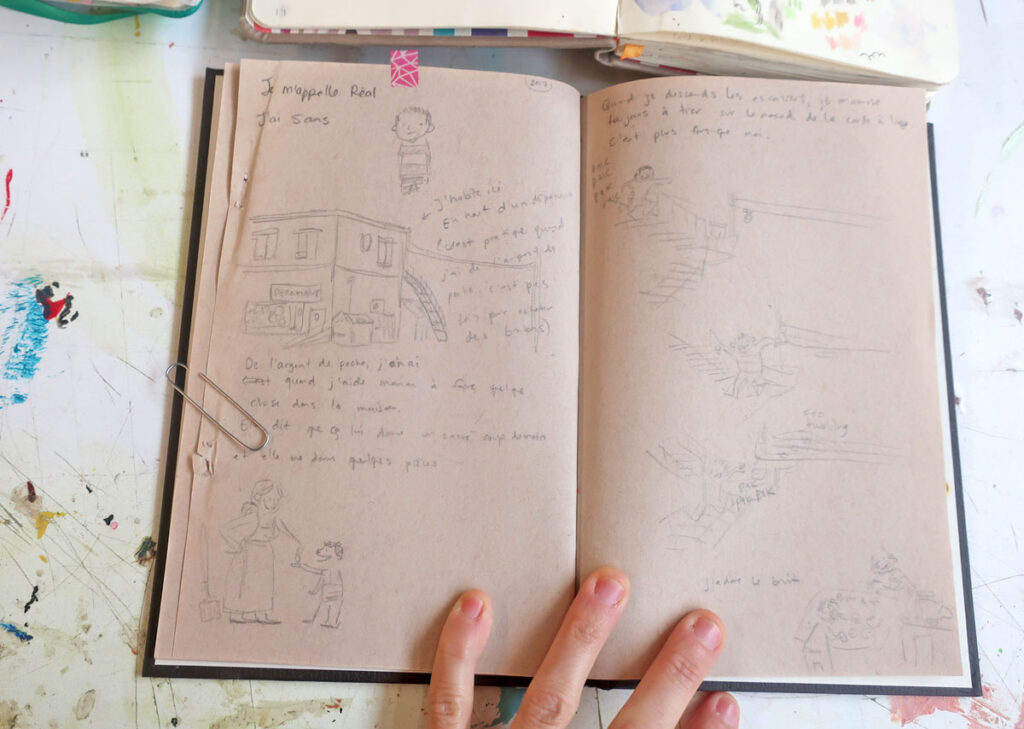 Je m'appelle Réal
2017
J'ai 5 ans
j'habite ici
En haut d'un dépanneur
(c'est pratique quand
j'ai de l'argent de
poche, c'est pas
pour
des
DÉPANNEUR
De l'argent de poche, j'en ai
quand j'aide maman à faire quelque
chose dans la maison.
dit que ça lui donne un sacré coup de main
et elle me donne quelques pièces
Quand je descends les escaliers, je m'amuse
toujours à tirer sur le noeud de la corde à linge
C'est plus fort que moi.
PAK
PAK
PAK
PAK
PAK PAK
J'adore le bruit